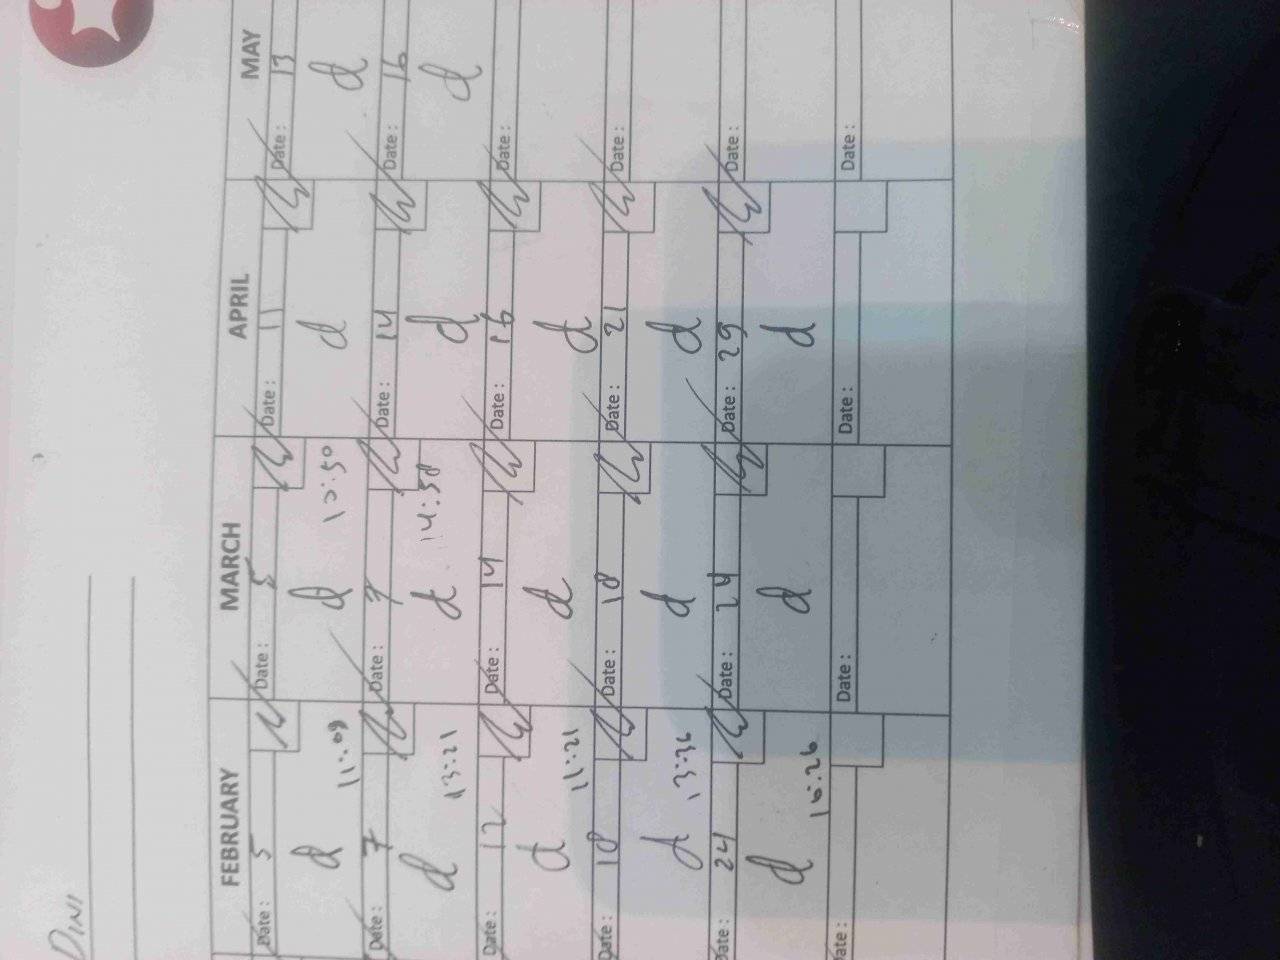 DINI
FEBRUARY MARCH APRIL MAY
Date: 5 Date: 5 Date: 11 Date: 13
d 11:09 d 12:50 d d
Date: 7 Date: 7 Date: 14 Date: 16
d 13:21 d 14:58 d d
Date: 12 Date: 14 Date: 16 Date:
d 11:21 d d
Date: 18 Date: 18 Date: 21 Date:
d 13:36 d d
Date: 24 Date: 24 Date: 29 Date:
d 16:26 d d
Date: Date: Date: Date: